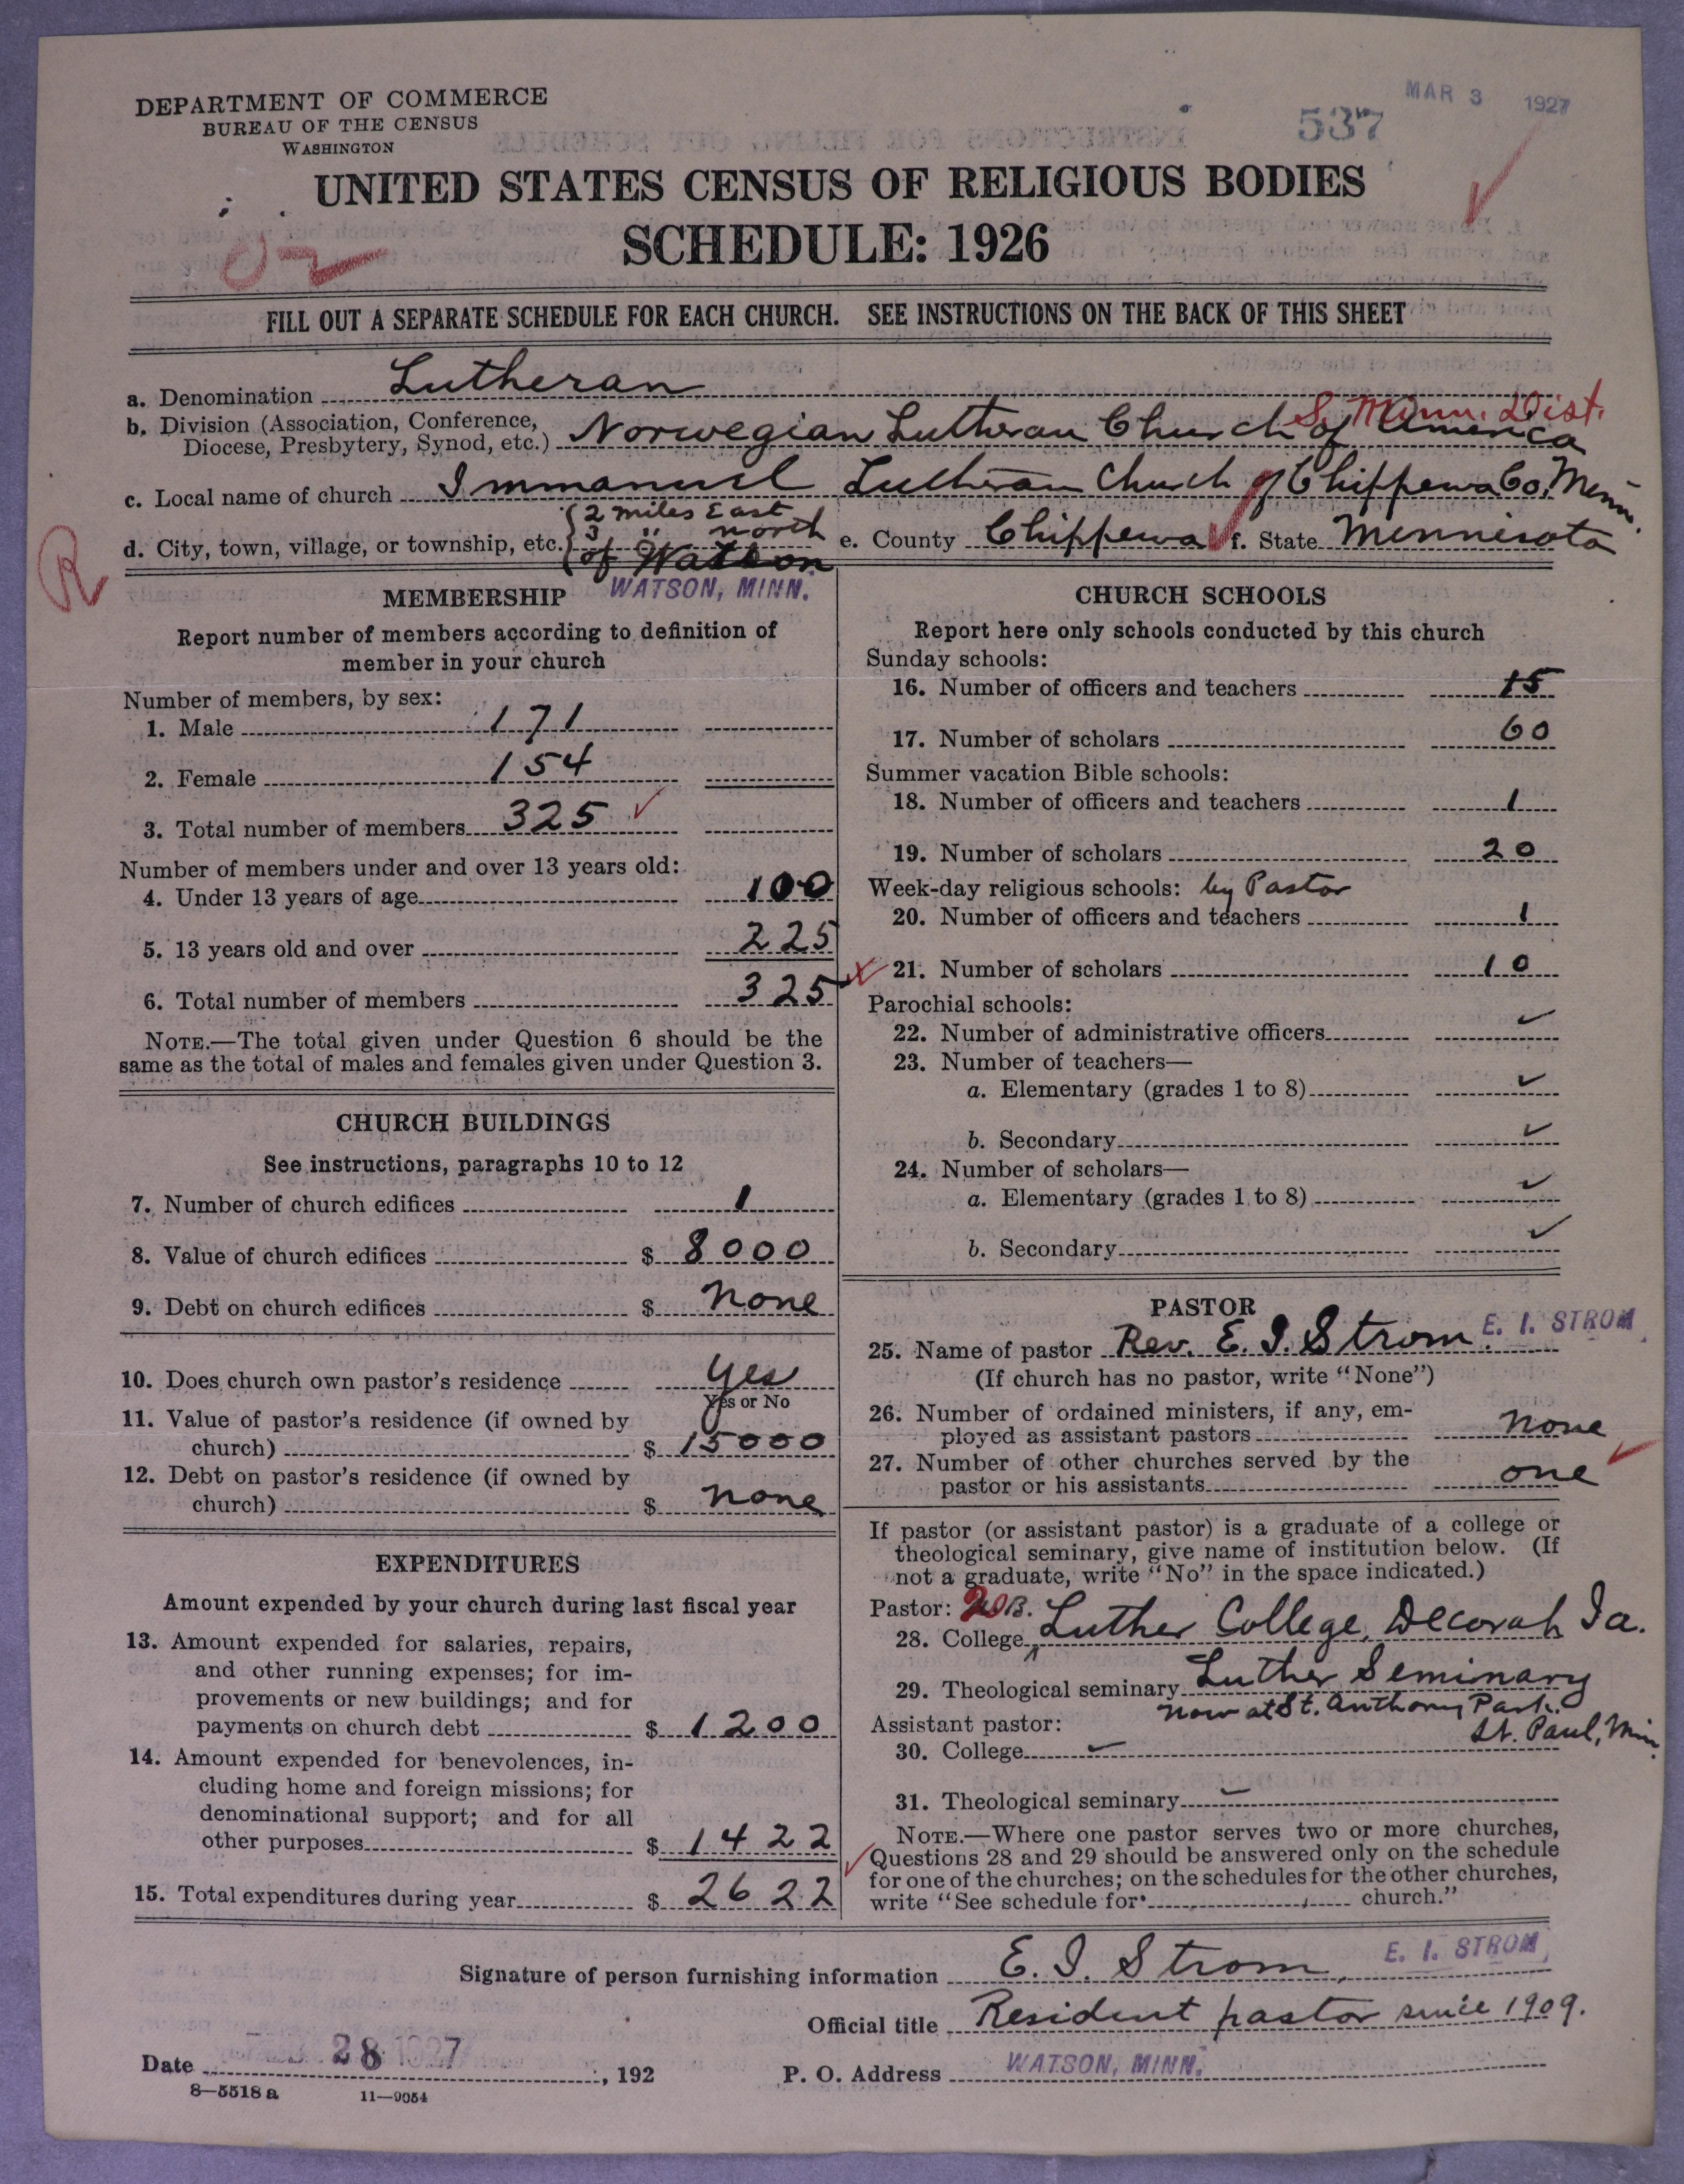 DEPARTMENT OF COMMERCE
BUREAU OF THE CENSUS
WASHINGTON
537
MAR 3 1927
UNITED STATES CENSUS OF RELIGIOUS BODIES
SCHEDULE: 1926
FILL OUT A SEPARATE SCHEDULE FOR EACH CHURCH. SEE INSTRUCTIONS ON THE BACK OF THIS SHEET
a. Denomination Lutheran
S. Minn. Dist.
b. Division (Association, Conference,
Diocese, Presbytery, Synod, etc.) Norwegian Lutheran Church of America
c. Local name of church Immanuel Lutheran Church of Chippewa Co, Minn.
d. City, town, village, or township, etc. {2 miles East
3 " north
of Watson
e. County Chippewa f. State Minnesota
R
WATSON, MINN.
MEMBERSHIP
Report number of members according to definition of
member in your church
Number of members, by sex:
1. Male 171
2. Female 154
3. Total number of members 325 ✓
Number of members under and over 13 years old:
4. Under 13 years of age 100
5. 13 years old and over 225
6. Total number of members 325
NOTE.—The total given under Question 6 should be the
same as the total of males and females given under Question 3.
CHURCH BUILDINGS
See instructions, paragraphs 10 to 12
7. Number of church edifices 1
8. Value of church edifices $ 8000
9. Debt on church edifices $ None
10. Does church own pastor's residence Yes
Yes or No
11. Value of pastor's residence (if owned by
church) $ 15000
12. Debt on pastor's residence (if owned by
church) $ none
EXPENDITURES
Amount expended by your church during last fiscal year
13. Amount expended for salaries, repairs,
and other running expenses; for im-
provements or new buildings; and for
payments on church debt $ 1200
14. Amount expended for benevolences, in-
cluding home and foreign missions; for
denominational support; and for all
other purposes $ 1422
15. Total expenditures during year $ 2622
CHURCH SCHOOLS
Report here only schools conducted by this church
Sunday schools:
16. Number of officers and teachers 15
17. Number of scholars 60
Summer vacation Bible schools:
18. Number of officers and teachers 1
19. Number of scholars 20
Week-day religious schools: by Pastor
20. Number of officers and teachers 1
21. Number of scholars 10
Parochial schools:
22. Number of administrative officers ✓
23. Number of teachers—
a. Elementary (grades 1 to 8) ✓
b. Secondary ✓
24. Number of scholars—
a. Elementary (grades 1 to 8) ✓
b. Secondary ✓
PASTOR
25. Name of pastor Rev. E. I. Strom. E. I. STROM
(If church has no pastor, write "None")
26. Number of ordained ministers, if any, em-
ployed as assistant pastors none
27. Number of other churches served by the
pastor or his assistants one
If pastor (or assistant pastor) is a graduate of a college or
theological seminary, give name of institution below. (If
not a graduate, write "No" in the space indicated.)
Pastor:
28. College Luther College, Decorah Ia.
29. Theological seminary Luther Seminary
now at St. Anthony Park.
St. Paul, Min.
Assistant pastor:
30. College
31. Theological seminary
NOTE.—Where one pastor serves two or more churches,
Questions 28 and 29 should be answered only on the schedule
for one of the churches; on the schedules for the other churches,
write "See schedule for church."
Signature of person furnishing information E. I. Strom, E. I. STROM
Official title Resident pastor since 1909.
Date 28 1927, 192
P. O. Address WATSON, MINN.
8—5518 a 11—9054